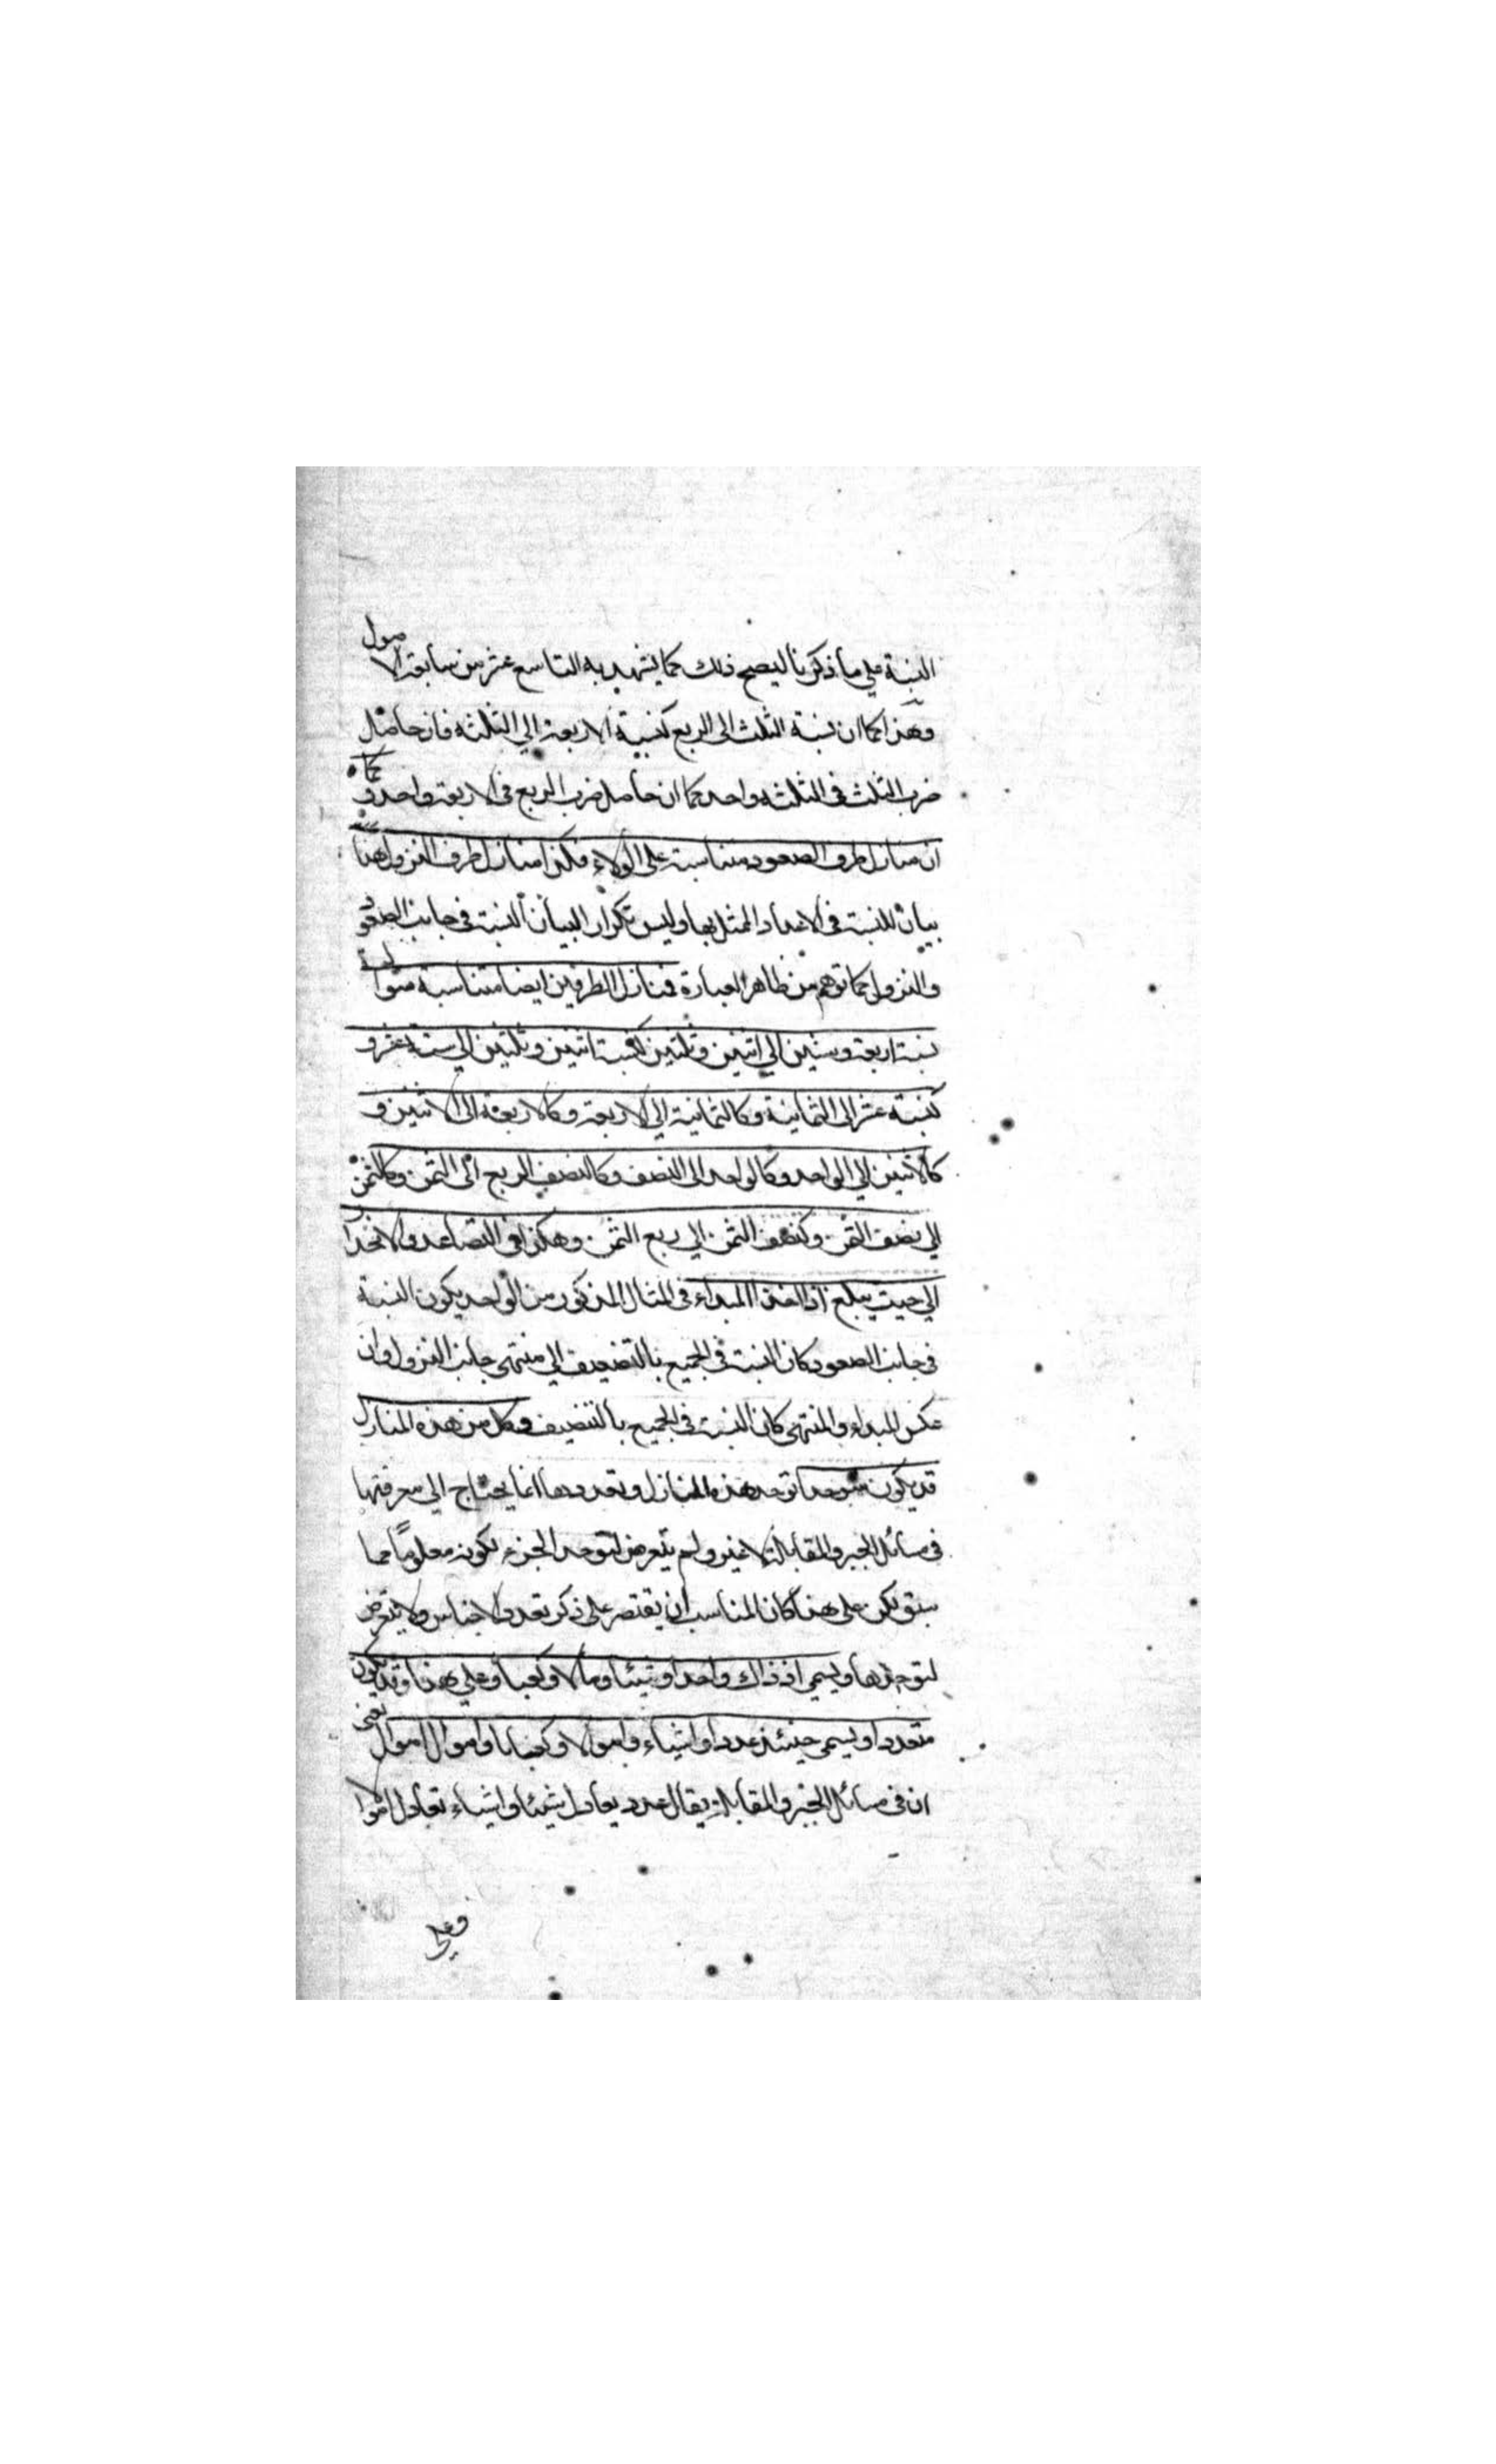 النسبة علي ما ذكرنا ليصح ذلك كما يشهد به التاسع عشر من سابعة الاصول
وهذا كما ان نسبة الثلث الى الربع كنسبة الاربعة الي الثلثة فان حاصل
ضرب الثلث في الثلثة واحد كما ان حاصل ضرب الربع في الاربعة واحد وكما
ان منازل طرف الصعود متناسبة على الولاء فكذا منازل طرف النزول هنا
بيان للنسبة في الاعداد الممثل بها وليس تكرار البيان النسبة في جانب الصعود
والنزول كما توهم من ظاهر العبارة فمنازل الطرفين ايضا متناسبة متوالية
نسبة اربعة وستين الي اثنين وثلثين كنسبة اثنين وثلثين الي ستة عشر و
كنسبة عشر الى الثمانية وكالثمانية الي الاربعة وكالاربعة الى الاثنين و
كالاثنين الي الواحد وكالواحد الى النصف وكالنصف الربع الى الثمن وكالثمن
الي نصف الثمن وكنصف الثمن الي ربع الثمن وهكذا في التصاعد والانحدا
الي حيث يبلغ اذا اخذ المبداء في المثال المذكور من الواحد يكون النسبة
في جانب الصعود كان النسبة في الجميع بالتضعيف الي منتهى جانب النزول وان
عكس المبداء والمنتهى كان النسبة في الجميع بالتنصيف وكل من هذه المنازل
قد يكون متوحدا توحد هذه المنازل وتعددها انما يحتاج الي معرفتها
في مسائل الجبر والمقابلة لا غير ولم يتعرض لتوحد الجزء لكونه معلوماً مما
سبق لكن على هذا كان المناسب ان يقتصر على ذكر تعدد الاجناس ولا يتعرض
لتوحدها ويسمى اذ ذاك واحدا وشيئا ومالا وكعبا وعلي هذا وقد يكون
متعددا ويسمى حينئذ عددا واشياء واموالا وكعابا واموال اموال يعني
ان في مسائل الجبر والمقابلة يقال عدد يعادل شيئا واشياء تعادل اموالا
وعلي